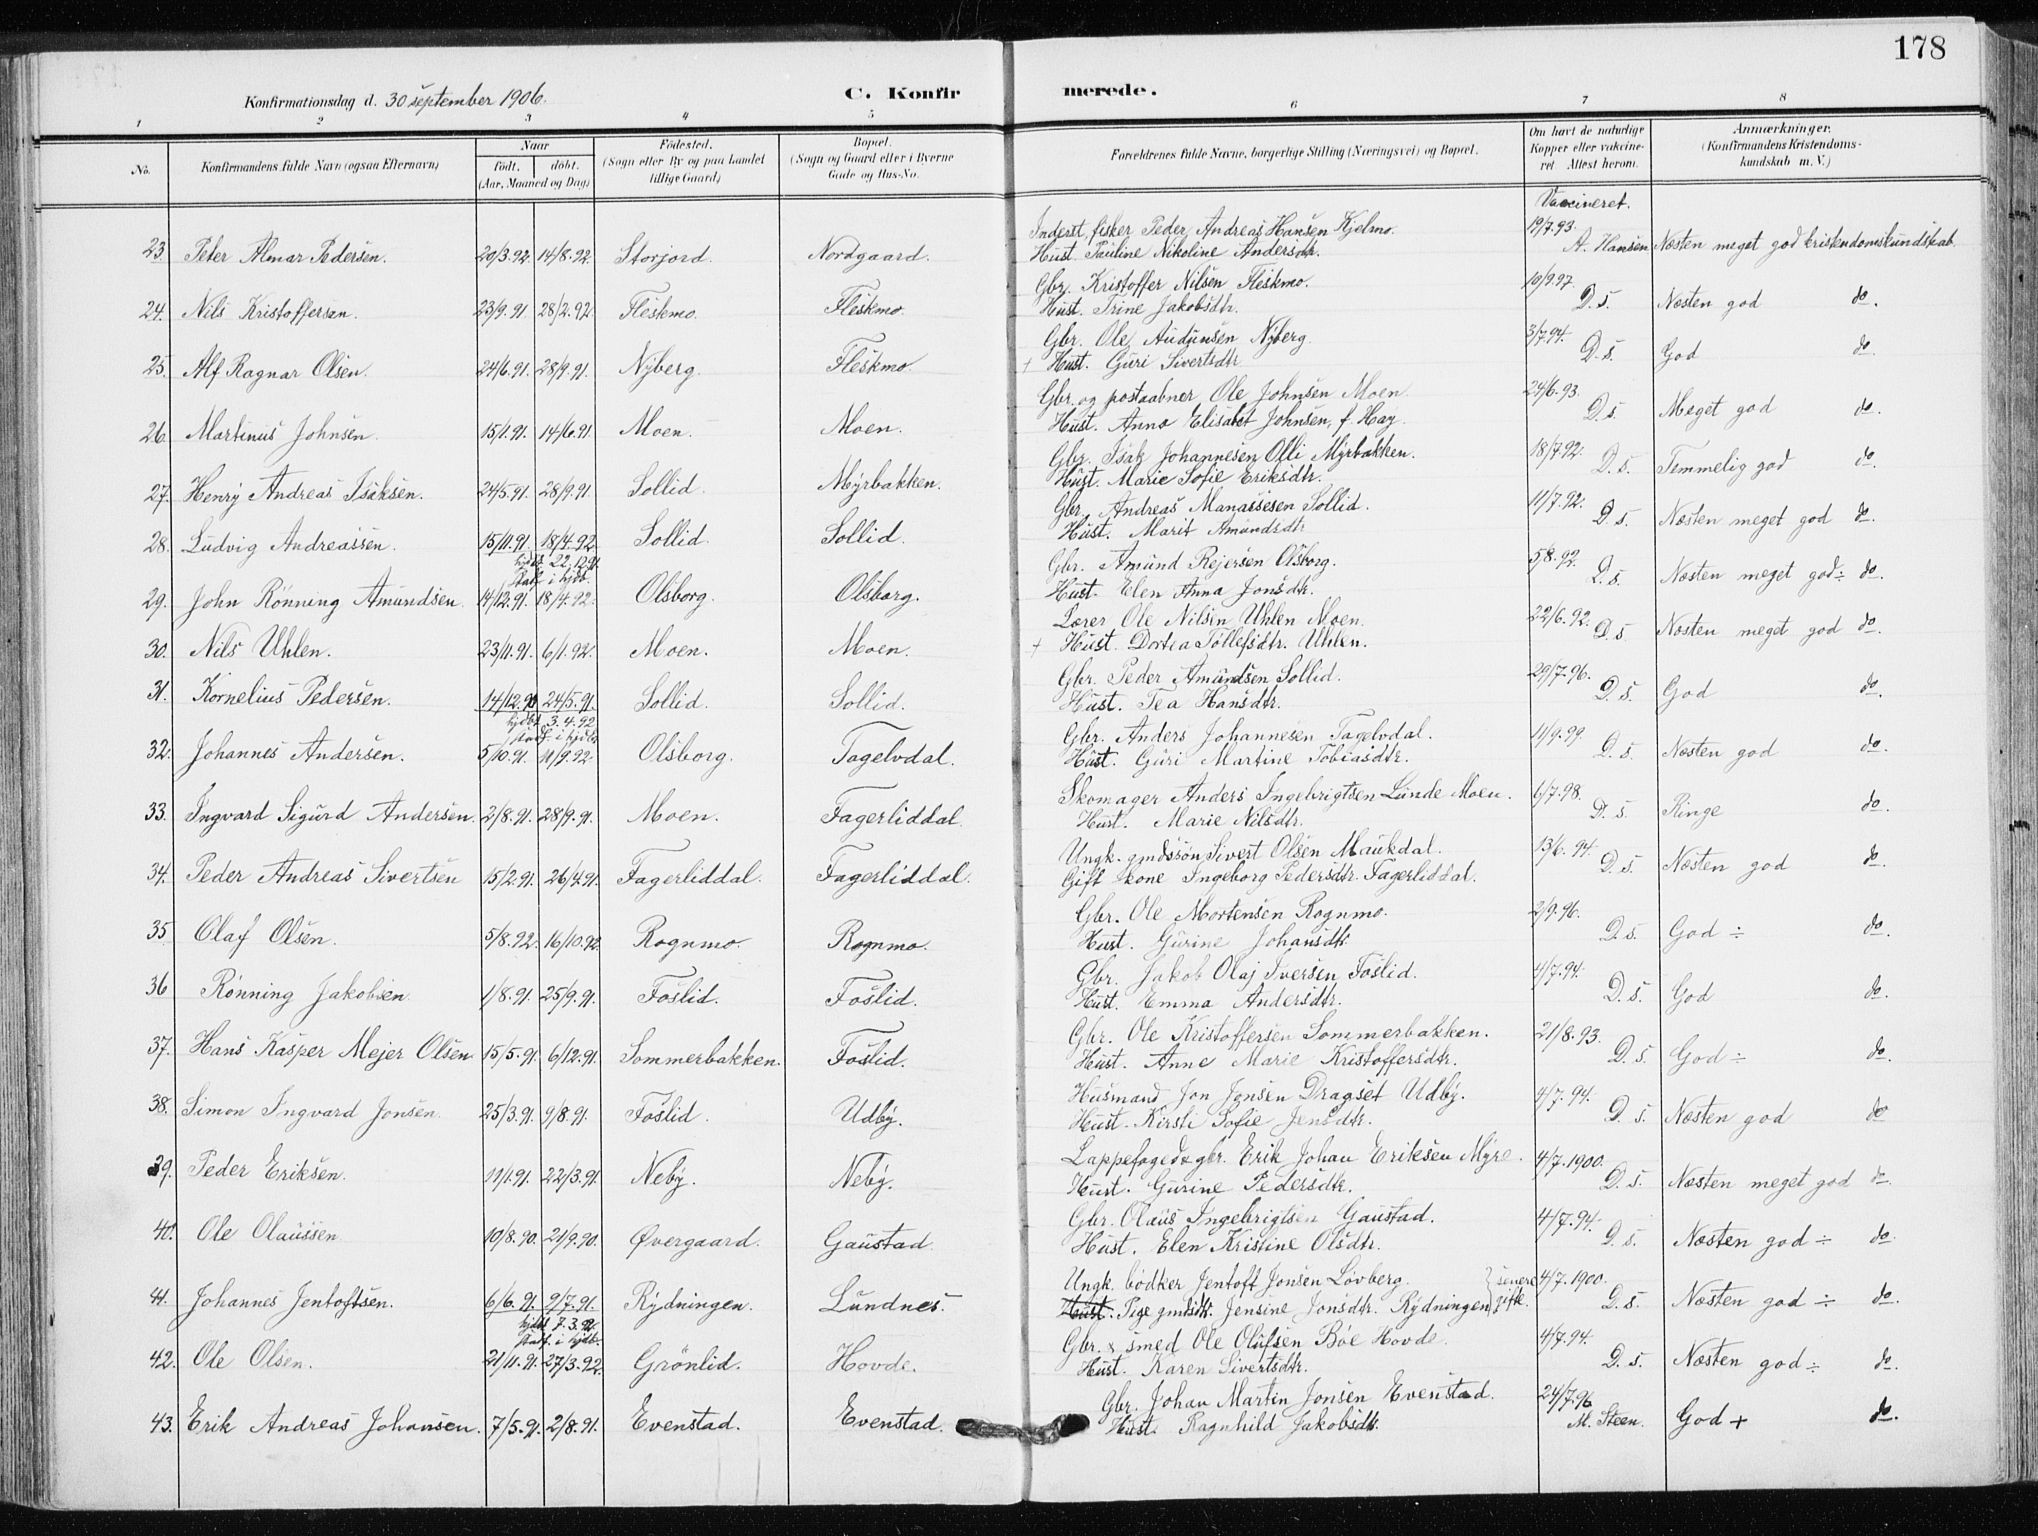 178
Konfirmationsdag d. 30 september 1906.
C. Konfirmerede.
1 2 3 4 5 6 7 8
No. Konfirmandens fulde Navn (ogsaa Efternavn) Naar født. døbt. (Aar, Maaned og Dag) Fødested. (Sogn eller By og paa Landet tillige Gaard) Bopæl. (Sogn og Gaard eller i Byerne Gade og Hus-No. Forældrenes fulde Navne, borgerlige Stilling (Næringsvei) og Bopæl. Om havt de naturlige Kopper eller vakcineret Attest herom. Anmærkninger. (Konfirmandens Kristendomskundskab m. V.)
Vaccineret.
Inderst, fisker Peder Andreas Hansen Kjelmo. 19/7.93.
23. Peter Almar Pedersen. 20/3.92. 14/8.92. Storjord. Nordgaard. Hust. Pauline Nikoline Andersdtr. A. Hansen Næsten meget god kristendomskundskab.
Gbr. Kristoffer Nilsen Fleskmo. 10/9.97.
24. Nils Kristoffersen. 23/9.91 28/2.92. Fleskmo. Fleskmo. Hust. Trine Jakobsdtr. D. s. Næsten god do.
Gbr. Ole Audunsen Nyberg. 3/7.94.
25. Alf Ragnar Olsen. 24/6.91. 28/9.91. Nyberg. Fleskmo. + Hust. Guri Sivertsdtr D. s. God do.
Gbr. og postaabner Ole Johnsen Moen. 24/6.93.
26. Martinus Johnsen. 15/1.91. 14/6.91. Moen. Moen. Hust. Anna Elisabet Johnsen, f. Hay. D. s. Meget god do.
Gbr. Isak Johannesen Olli Myrbakken. 18/7.92.
27. Henry Andreas Isaksen. 24/5.91. 28/9.91. Sollid. Myrbakken. Hust. Marie Sofie Eriksdtr. D. s. Temmelig god do.
Gbr. Andreas Manassesen Sollid. 11/7.92.
28. Ludvig Andreassen. 15/11.91. 18/4.92. Sollid. Sollid. Hust. Marit Amundsdtr D. s. Næsten meget god do.
hjdbt 22.12.91.
stadf. i hjdb.
Gbr. Amund Rejersen Olsborg. 5/8.92.
29. John Rönning Amundsen. 14/12.91. 18/4.92. Olsborg. Olsborg. Hust. Elen Anna Jonsdtr. D. s. Næsten meget god ÷ do.
Lærer Ole Nilsen Uhlen Moen. 22/6.92.
30. Nils Uhlen. 23/11.91. 6/1.92. Moen. Moen. + Hust. Dortea Tollefsdtr. Uhlen. D. s. Næsten meget god do.
Gbr. Peder Amundsen Sollid. 29/7.96.
31. Kornelius Pedersen. 14/12.90 24/5.91. Sollid. Sollid. Hust. Tea Hansdtr. D. s. God do.
hjdbt 3.4.92
stadf. i hjdb.
Gbr. Anders Johannesen Tagelvdal. 11/9.99.
32. Johannes Andersen. 5/10.91. 11/9.92. Olsborg. Tagelvdal. Hust. Guri Martine Tobiasdtr. D. s. Næsten god do.
Skomager Anders Ingebrigtsen Lunde Moen. 6/7.98.
33. Ingvard Sigurd Andersen. 2/8.91. 28/9.91. Moen. Fagerliddal. Hust. Marie Nilsdtr. D. s. Ringe do.
Ungk. gmdssøn Sivert Olsen Maukdal. 13/6.94.
34. Peder Andreas Sivertsen 15/2.91. 26/4.91. Fagerliddal. Fagerliddal. Gift kone Ingeborg Pedersdtr. Fagerliddal. D. s. Næsten god do.
Gbr. Ole Mortensen Rognmo. 2/9.96.
35 Olaf Olsen. 5/8.92. 16/10.92. Rognmo. Rognmo. Hust. Gurine Johansdtr. D. s. God ÷ do.
Gbr. Jakob Olaj Iversen Foslid. 4/7.94.
36 Rönning Jakobsen. 1/8.91. 25/9.91. Foslid. Foslid. Hust. Emma Andersdtr. D. s. God do.
Gbr. Ole Kristoffersen Sommerbakken. 21/8.93.
37. Hans Kasper Mejer Olsen. 15/5.91. 6/12.91. Sommerbakken. Foslid. Hust. Anne Marie Kristoffersdtr. D. s. God ÷ do.
Husmand Jon Jonsen Dragset Udby. 4/7.94.
38. Simon Ingvard Jonsen. 25/3.91. 9/8.91. Foslid. Udby. Hust. Kirsti Sofie Jensdtr. D. s. Næsten god do
Lappefoged & gbr. Erik Johan Eriksen Myre. 4/7.1900.
39. Peder Eriksen. 11/1.91. 22/3.91. Neby. Neby. Hust. Gurine Pedersdtr. D. s. Næsten meget god do.
Gbr. Olaus Ingebrigtsen Gaustad. 4/7.94.
40. Ole Olaussen. 10/8.90. 21/9.90. Øvergaard. Gaustad. Hust. Elen Kristine Olsdtr. D. s. Næsten god ÷ do.
Ungk. bödker Jentoft Jonsen Lövberg. } senere gifte. 4/7.1900.
41. Johannes Jentoftsen. 6/6.91. 9/7.91. Rydningen. Lundnes. Hust. Pige gmdsdtr. Jensine Jonsdtr. Rydningen D. s. Næsten god ÷ do.
hjdbt 7.3.92.
stadf. i hjdb.
Gbr. & smed Ole Olufsen Bøe Hovde. 4/7.94.
42. Ole Olsen. 21/11.91. 27/3.92. Grönlid. Hovde. Hust. Karen Sivertsdtr. D. s. Næsten god ÷ do.
Gbr. Johan Martin Jonsen Evenstad. 24/7.96
43. Erik Andreas Johansen. 7/5.91. 2/8.91. Evenstad. Evenstad. Hust. Ragnhild Jakobsdtr. M. Steen. God + do.